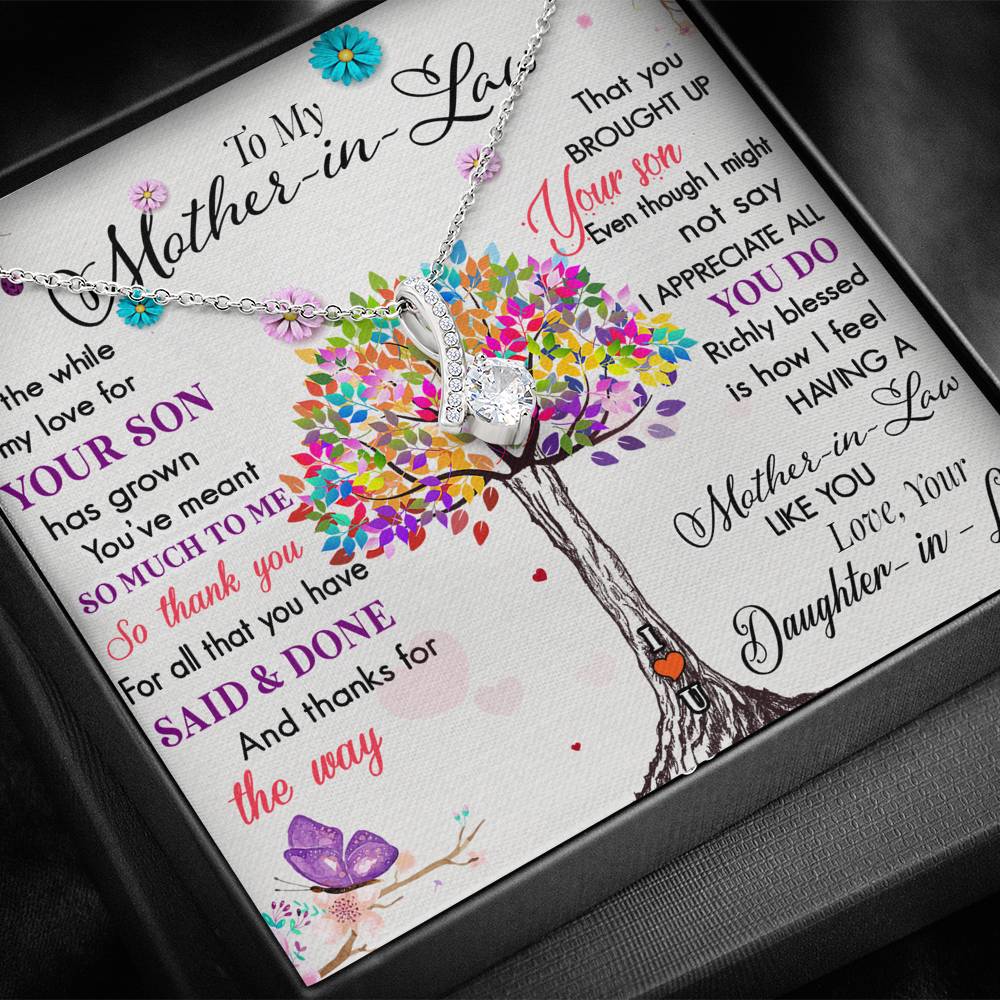 To My
Mother-in-Law
the while
my love for
YOUR SON
has grown
You've meant
SO MUCH TO ME
So thank you
For all that you have
SAID & DONE
And thanks for
the way
That you
BROUGHT UP
Your son
Even though I might
not say
I APPRECIATE ALL
YOU DO
Richly blessed
is how I feel
HAVING A
Mother-in-Law
LIKE YOU
Love, Your
Daughter-in-L
I
U